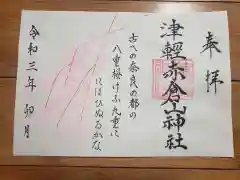 奉拝
津軽赤倉山神社
古への奈良の都の
八重桜けふ九重に
にほひぬるかな
令和三年卯月